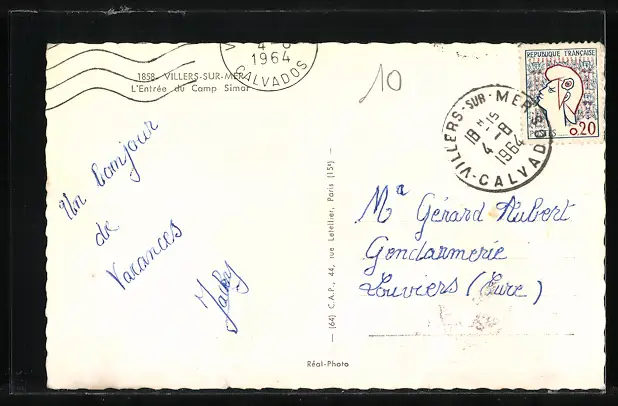 1858. VILLERS-SUR-MER
L'Entrée du Camp Simar
4 8
1964
CALVADOS
Un bonjour
de
Vacances
Jacky
(64) C.A.P., 44, rue Letellier, Paris (15e)
Réal-Photo
10
REPUBLIQUE FRANÇAISE
POSTES 0,20
VILLERS-SUR-MER
18 H 15
4-8
1964
CALVADOS
Mr Gérard Aubert
Gendarmerie
Louviers (Eure)